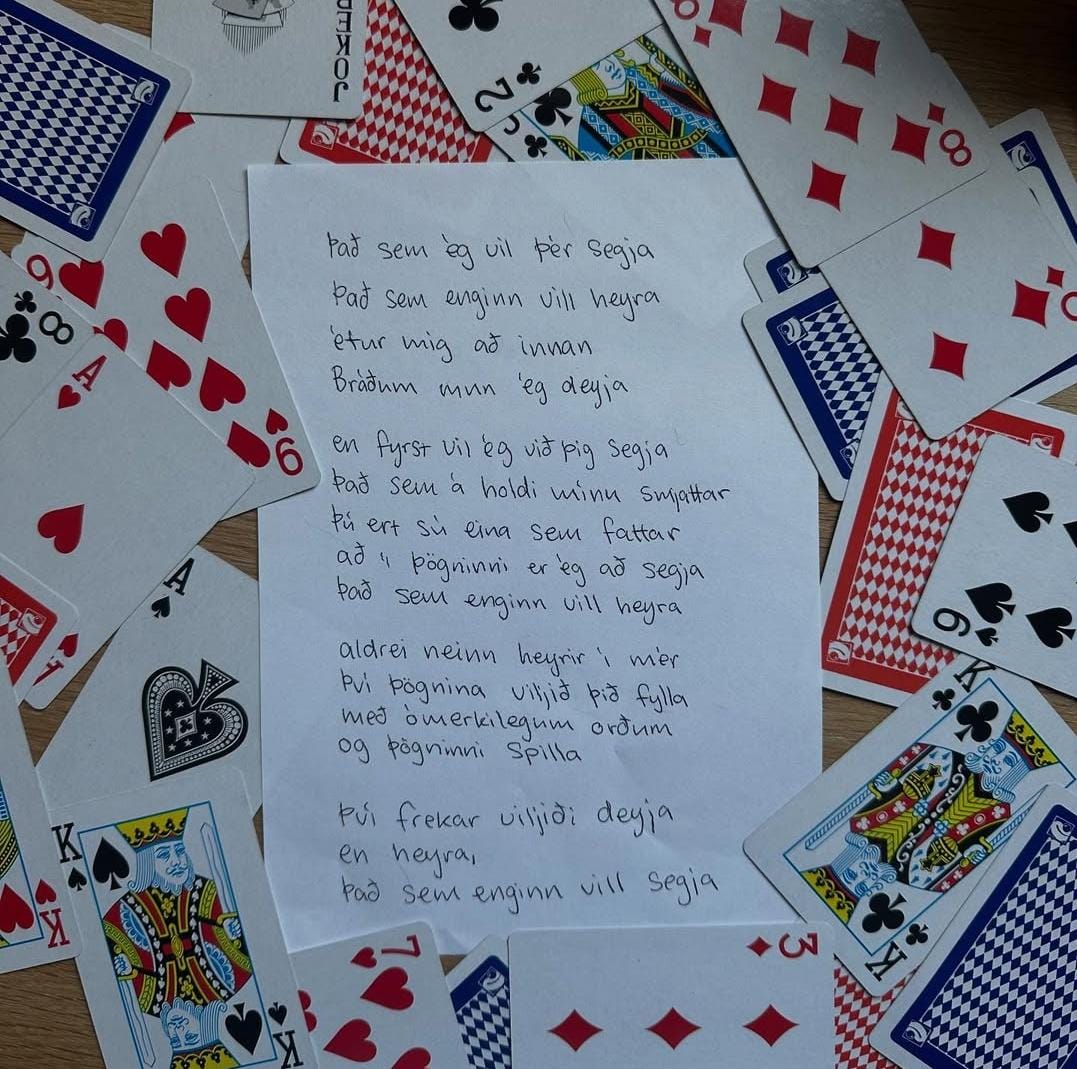 JOKER
2
J
8
9
8
A
9
A
A
6
K
K
K
K
K
7
3
Það sem ég vil þér segja
Það sem enginn vill heyra
étur mig að innan
Bráðum mun ég deyja
en fyrst vil ég við þig segja
Það sem á holdi mínu smjattar
Þú ert sú eina sem fattar
að í þögninni er ég að segja
Það sem enginn vill heyra
aldrei neinn heyrir í mér
Því þögnina viljið þið fylla
með ómerkilegum orðum
og þögninni spilla
Því frekar viljiði deyja
en heyra,
Það sem enginn vill segja